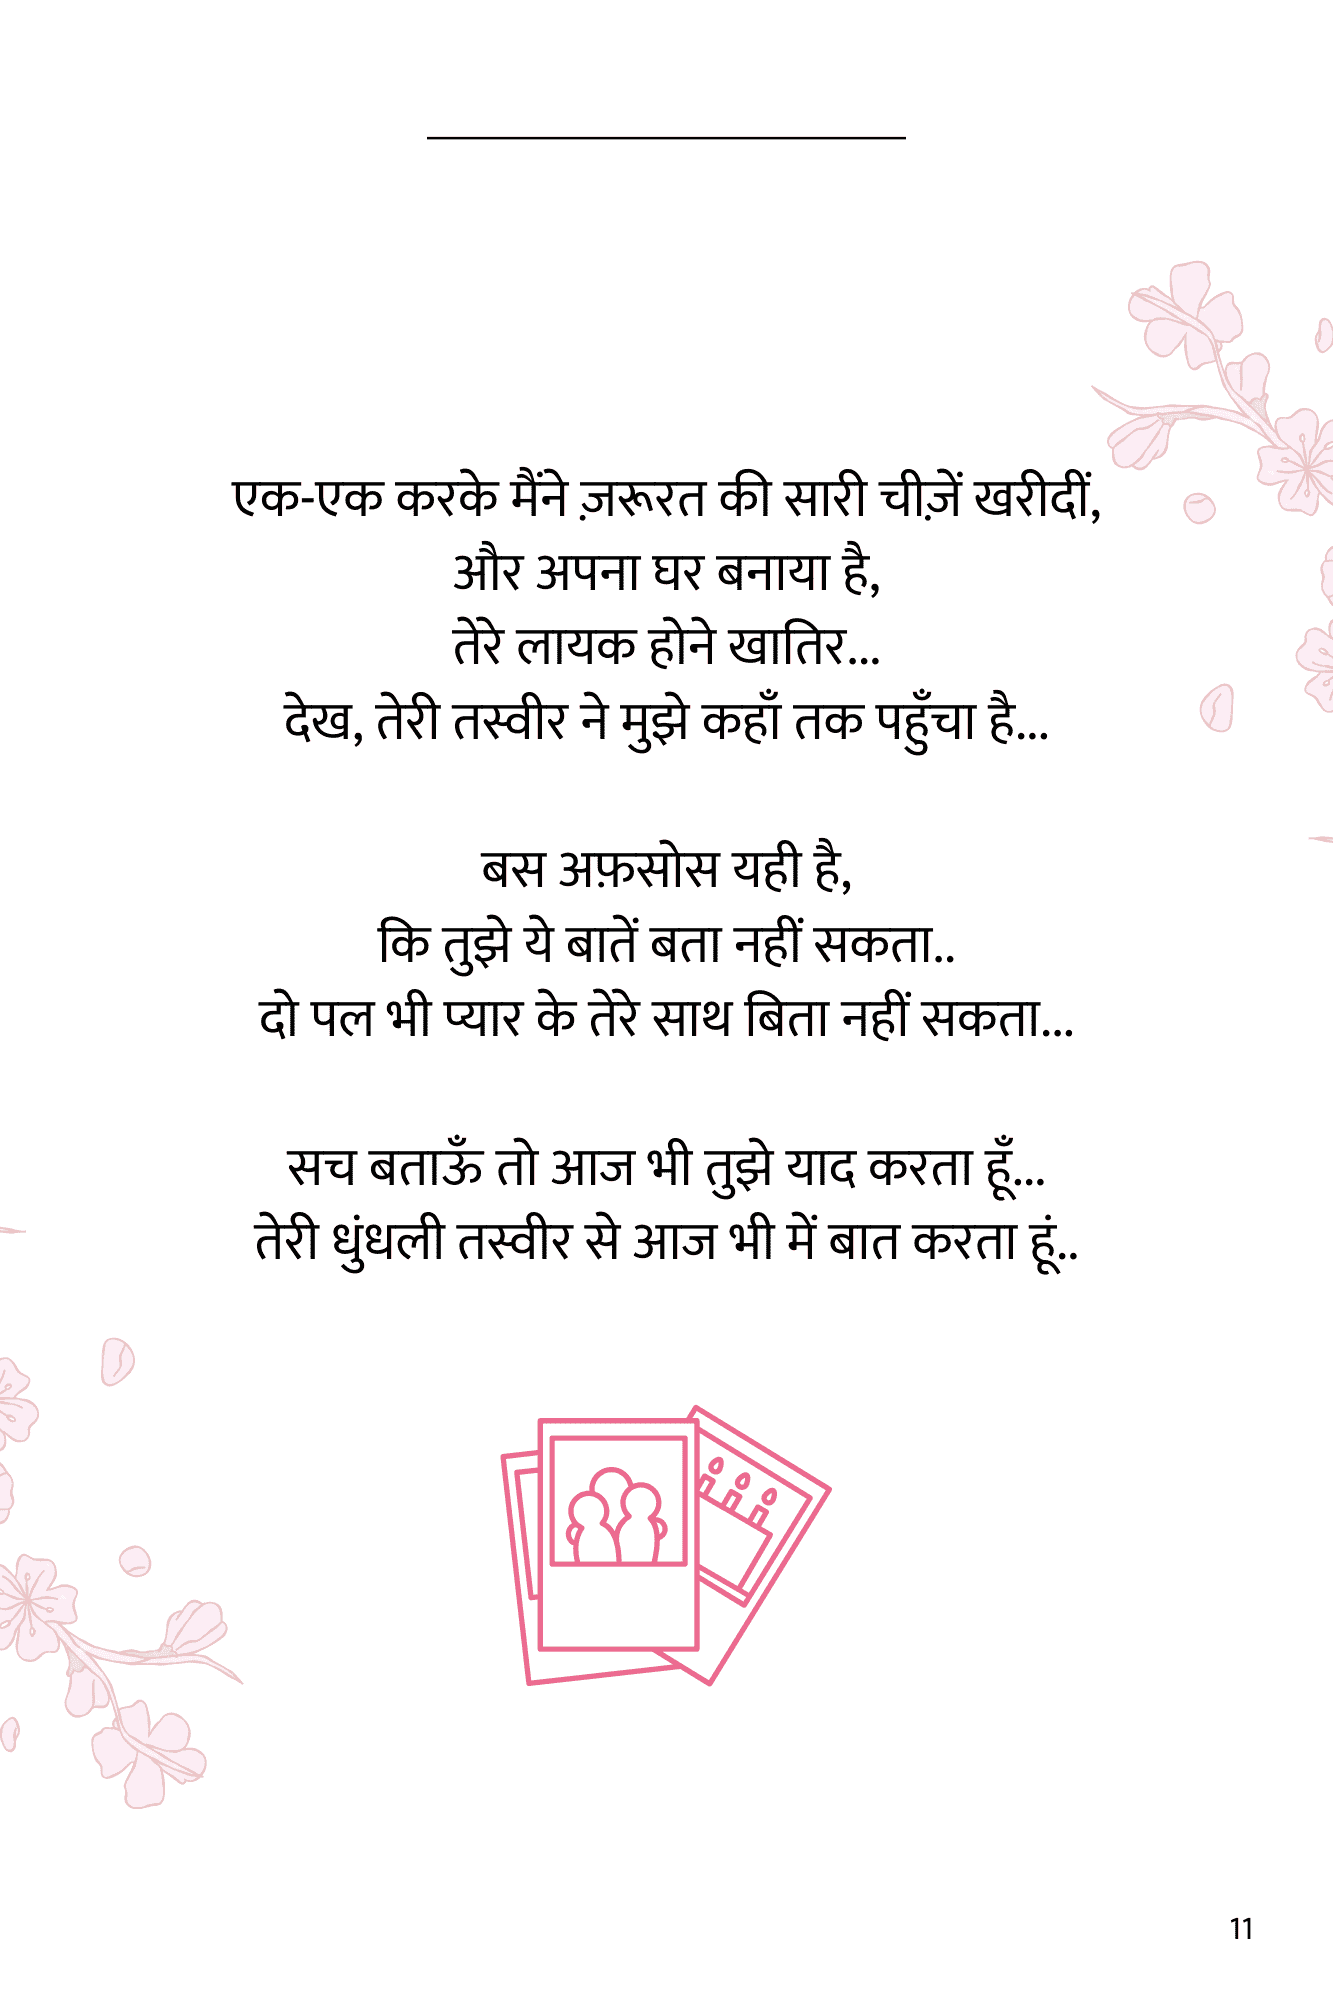 एक-एक करके मैंने ज़रूरत की सारी चीज़ें खरीदीं,
और अपना घर बनाया है,
तेरे लायक होने खातिर...
देख, तेरी तस्वीर ने मुझे कहाँ तक पहुँचा है...
बस अफ़सोस यही है,
कि तुझे ये बातें बता नहीं सकता..
दो पल भी प्यार के तेरे साथ बिता नहीं सकता...
सच बताऊँ तो आज भी तुझे याद करता हूँ...
तेरी धुंधली तस्वीर से आज भी में बात करता हूं..
11